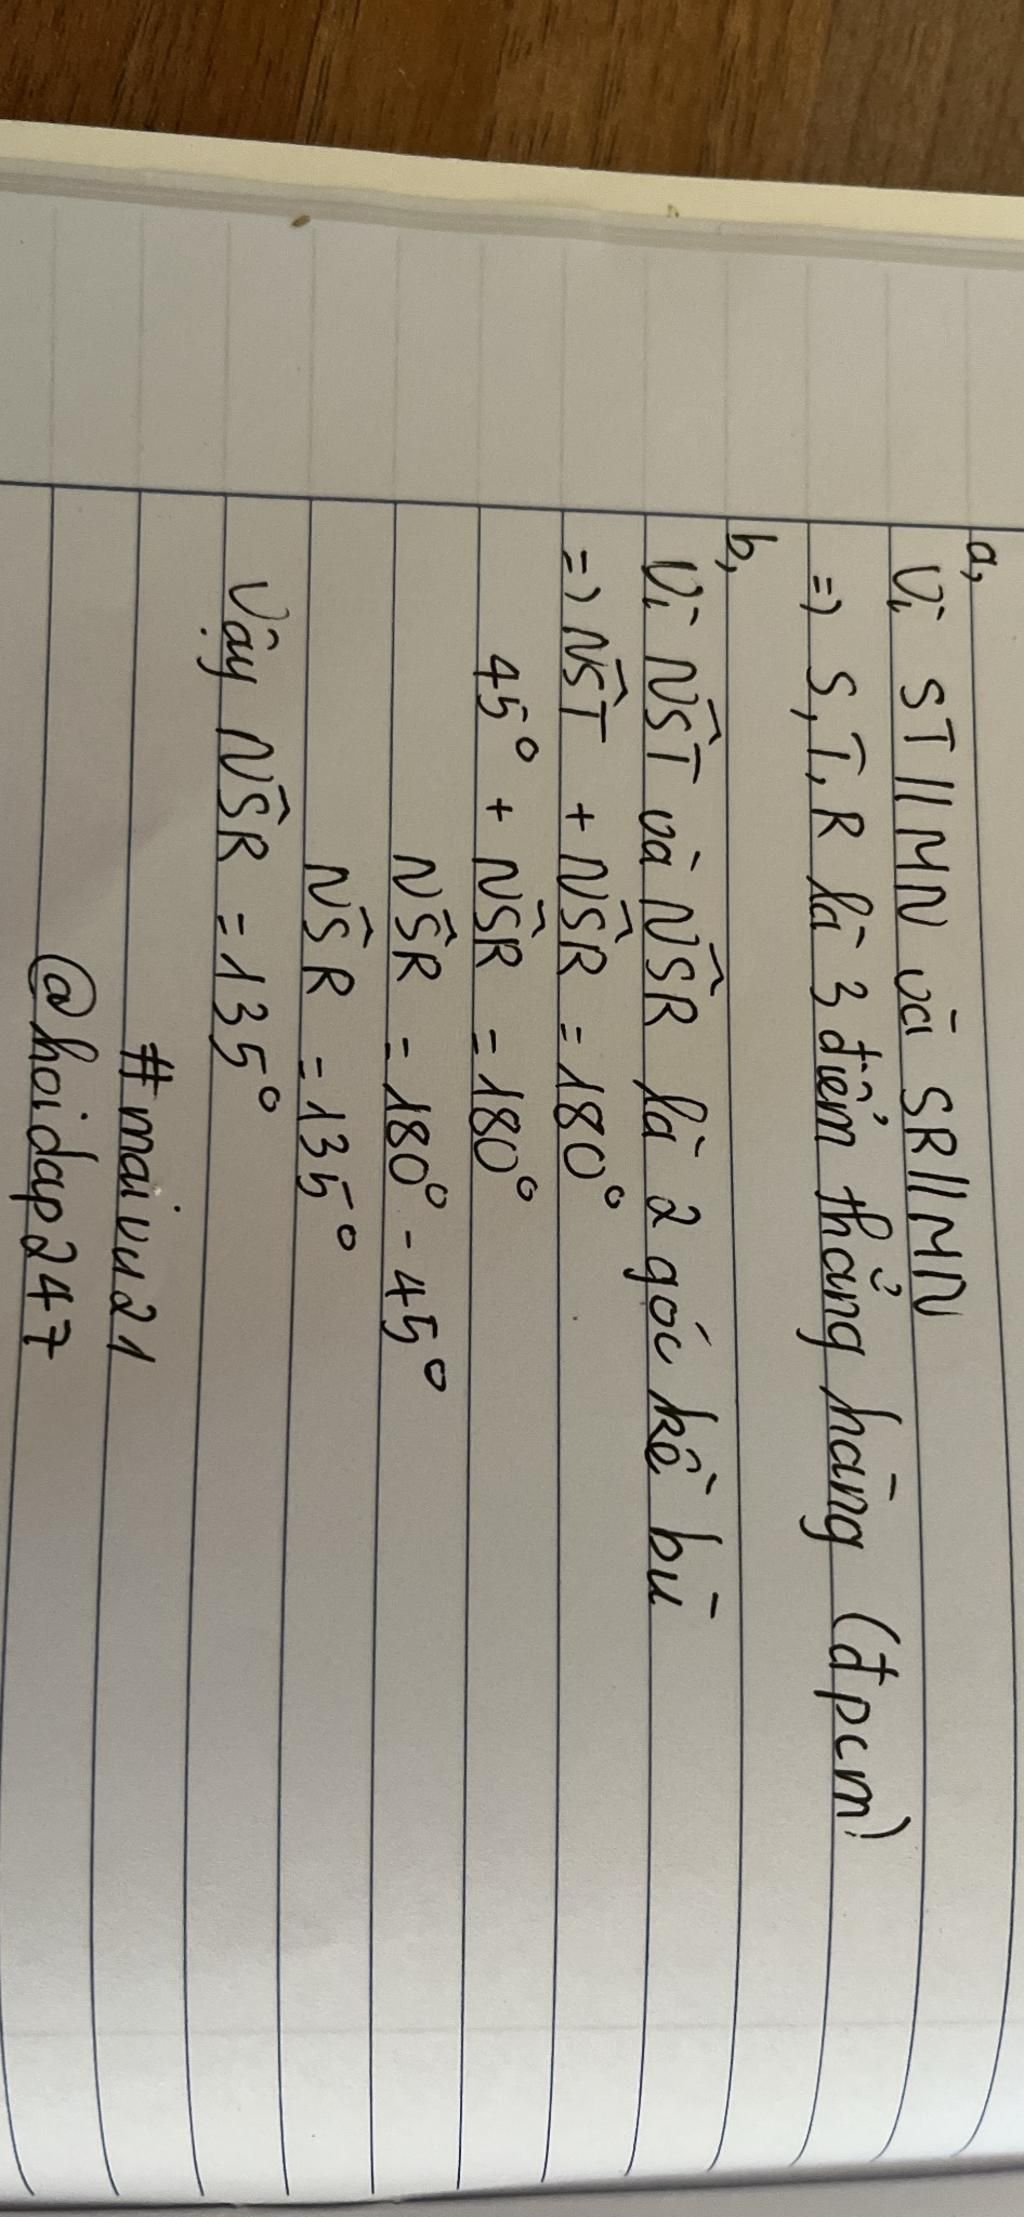 a,
Vì ST // MN và SR // MN
=> S, T, R là 3 điểm thẳng hàng (đpcm)
b,
Vì NŜT và NŜR là 2 góc kề bù
=> NŜT + NŜR = 180°
45° + NŜR = 180°
NŜR = 180° - 45°
NŜR = 135°
Vậy NŜR = 135°
#maivu21
@hoidap247